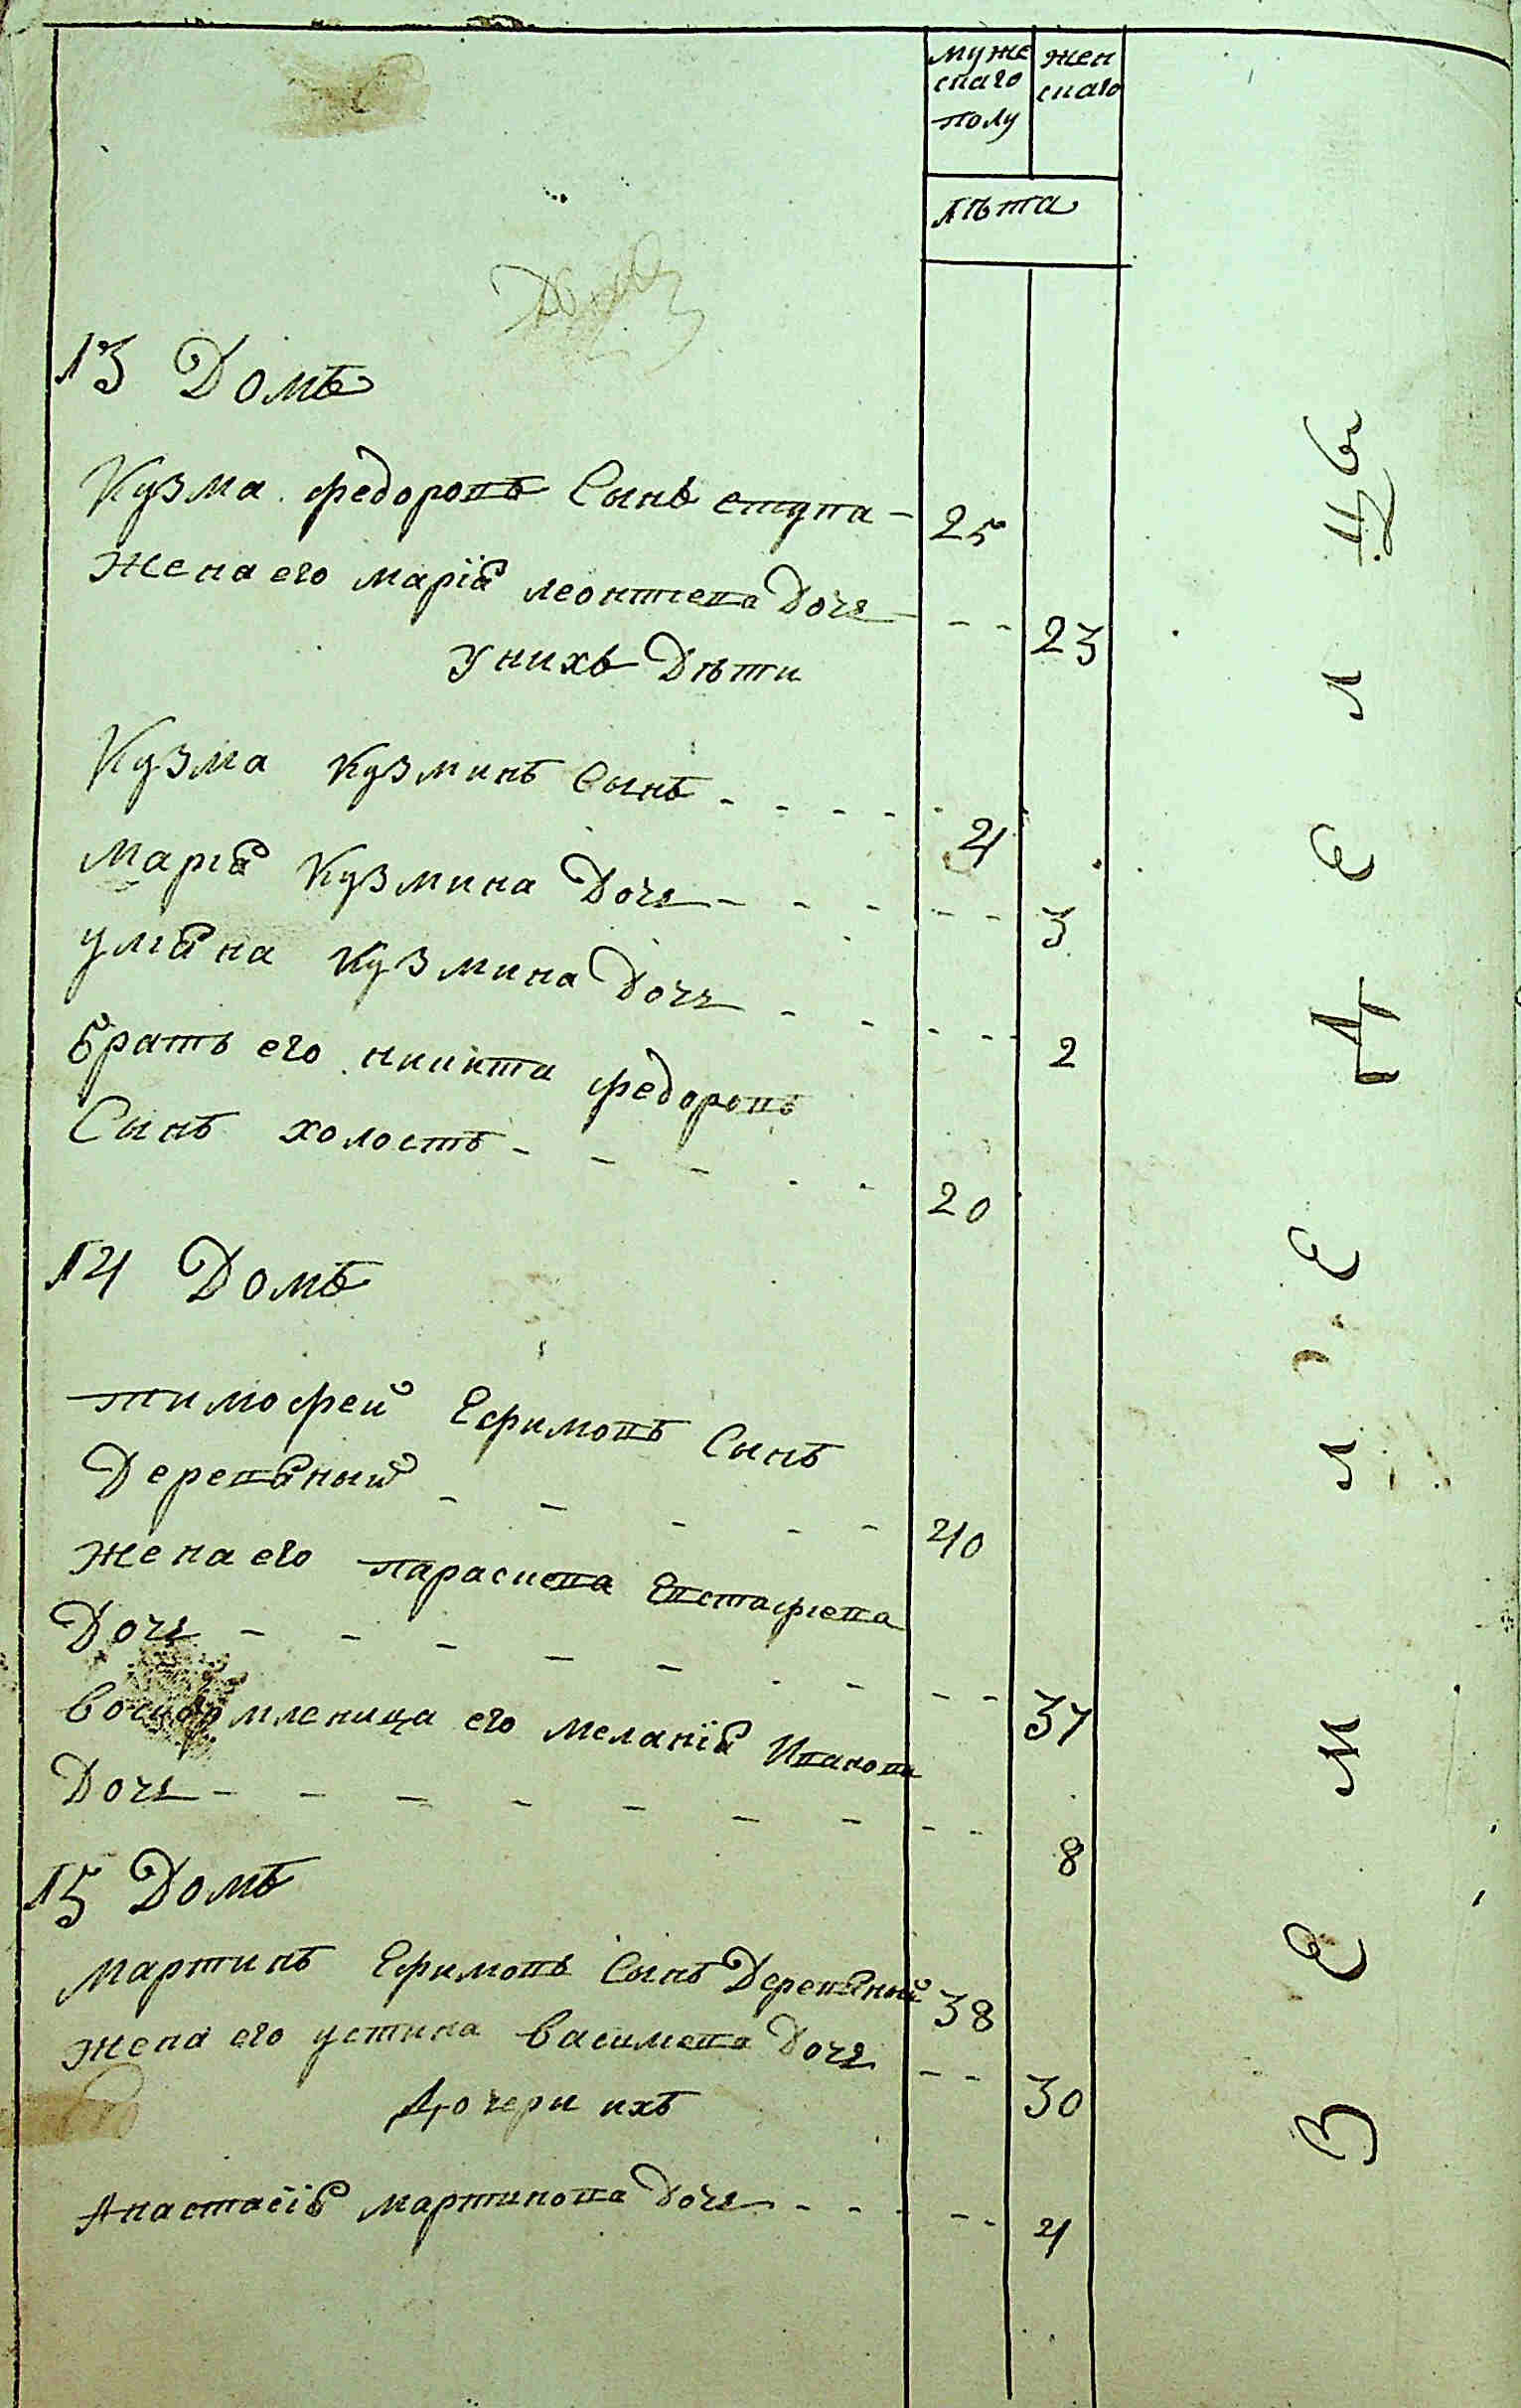 муже
скаго
полу
жен
скаго
лѣта
13 Домъ
Кузма федоровъ Сынъ ступа 25
жена его марïа леонтева Дочь 23
У нихъ Дѣти
Кузма Кузминъ Сынъ 4
Марïа Кузмина Дочь 3
улïана Кузмина Дочь 2
братъ его никита федоровъ
Сынъ холостъ 20
14 Домъ
тимофей Ефимовъ Сынъ
Деревяный 40
жена его параскева Евстафïева
Дочь 37
воскормленица его меланïа Иванова
Дочь 8
15 Домъ
мартинъ Ефимовъ Сынъ Деревяный 38
жена его устина василева Дочь 30
Дочери ихъ
Анастасïя мартинова Дочь 4
ЗЕМЛЕДЕЛЦЬ